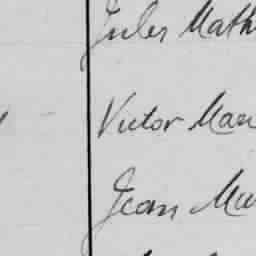 Jules Math
Victor Mar
Jean Mu